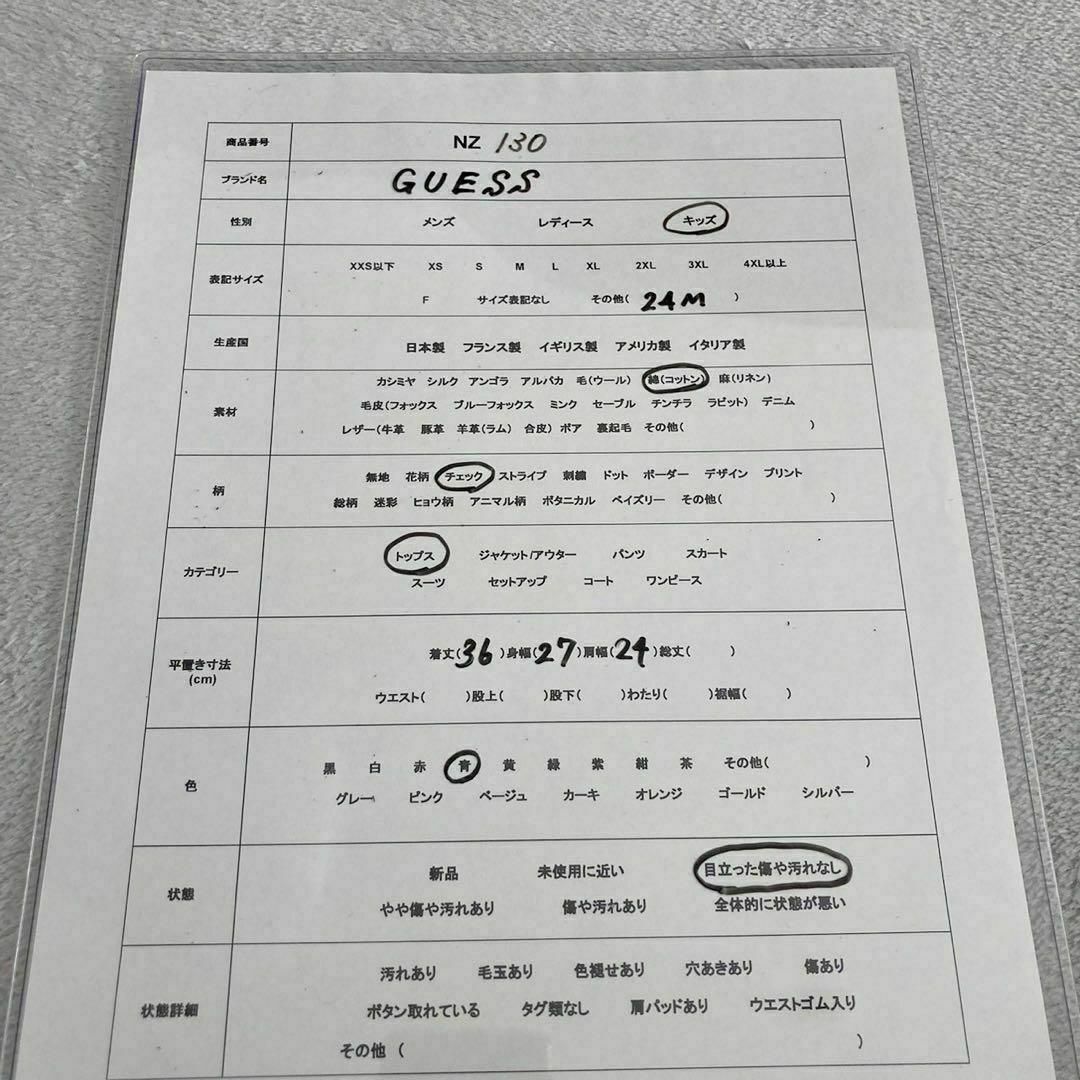 商品番号 NZ 130
ブランド名 GUESS
性別 メンズ レディース キッズ
表記サイズ XXS以下 XS S M L XL 2XL 3XL 4XL以上
F サイズ表記なし その他( 24M )
生産国 日本製 フランス製 イギリス製 アメリカ製 イタリア製
素材 カシミヤ シルク アンゴラ アルパカ 毛(ウール) 綿(コットン) 麻(リネン)
毛皮(フォックス ブルーフォックス ミンク セーブル チンチラ ラビット) デニム
レザー(牛革 豚革 羊革(ラム) 合皮) ボア 裏起毛 その他( )
柄 無地 花柄 チェック ストライプ 刺繍 ドット ボーダー デザイン プリント
総柄 迷彩 ヒョウ柄 アニマル柄 ボタニカル ペイズリー その他( )
カテゴリー トップス ジャケット/アウター パンツ スカート
スーツ セットアップ コート ワンピース
平置き寸法 着丈(36)身幅(27)肩幅(24)総丈( )
(cm) ウエスト( )股上( )股下( )わたり( )裾幅( )
色 黒 白 赤 青 黄 緑 紫 紺 茶 その他( )
グレー ピンク ベージュ カーキ オレンジ ゴールド シルバー
状態 新品 未使用に近い 目立った傷や汚れなし
やや傷や汚れあり 傷や汚れあり 全体的に状態が悪い
状態詳細 汚れあり 毛玉あり 色褪せあり 穴あきあり 傷あり
ボタン取れている タグ類なし 肩パッドあり ウエストゴム入り
その他 ( )